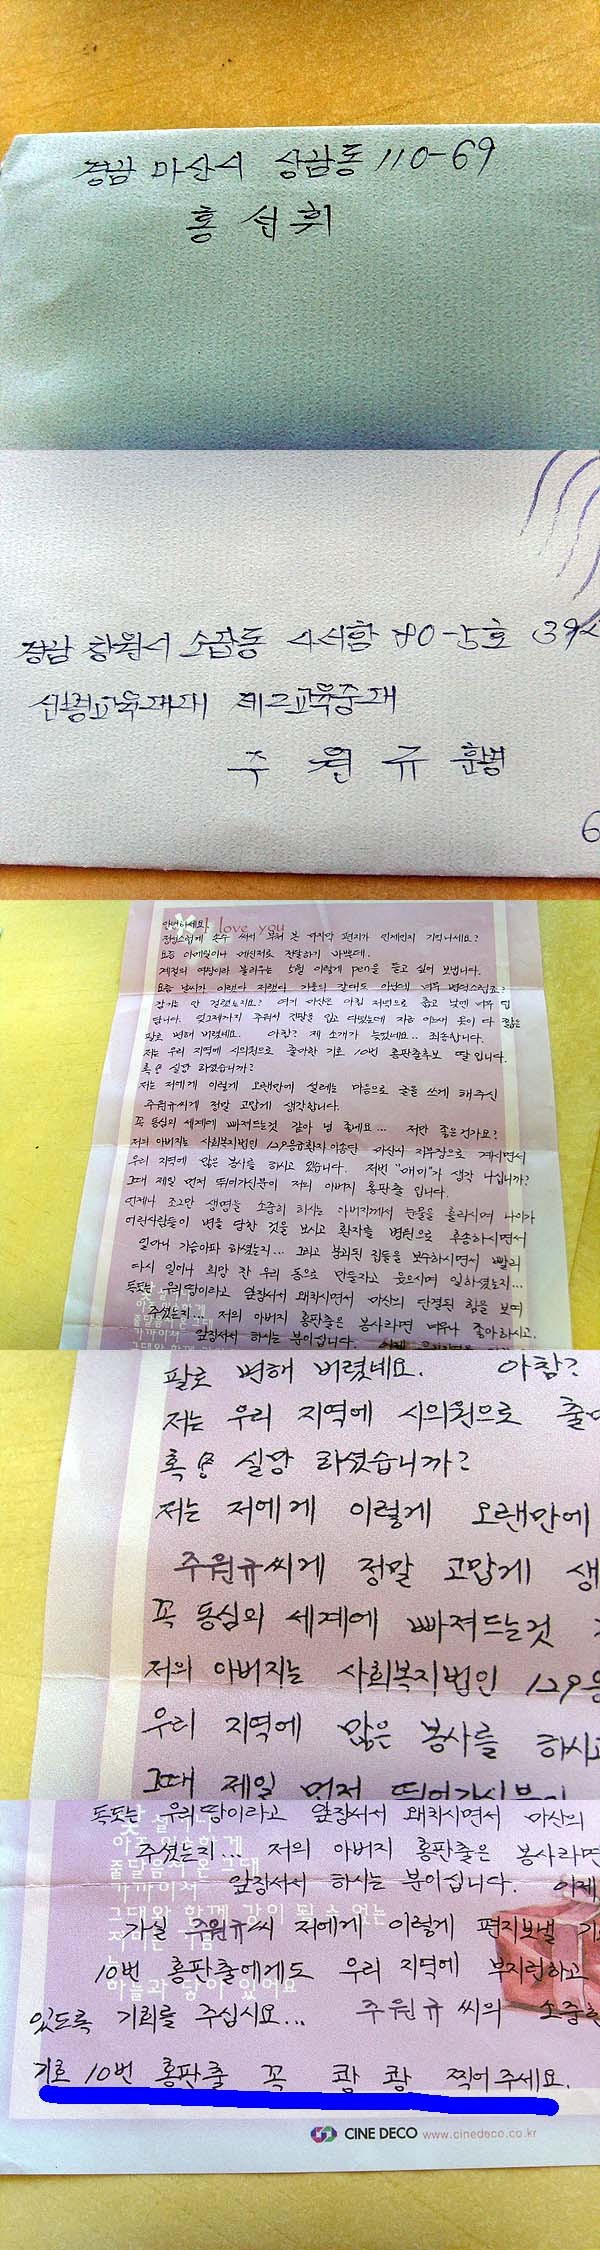 경남 마산시 상남동 110-69
홍 선 휘
경남 창원시 소답동 사서함 80-5호 39사
신병교육대대 제2교육중대
주 원 규 훈병
6
안녕하세요
I love you
손수 써서 보내 본 마지막 편지가 언제인지 기억나세요?
요즘 이메일이나 메신저로 전달하기 바쁜데.
계절의 여왕이라 불리우는 5월 이렇게 pen을 들고 싶어 보냅니다.
요즘 날씨가 이랬다 저랬다 가을의 갈대도 아닌데 너무 변덕스럽죠?
감기는 안 걸렸는지요? 여기 마산은 아침 저녁으로 춥고 낮엔 너무 덥
답니다. 엊그제까지 추워서 잠바를 입고 다녔는데 지금 어느새 옷이 다 짧은
팔로 변해 버렸네요. 아참? 제 소개가 늦었네요.. 죄송합니다.
저는 우리 지역에 시의원으로 출마한 기호 10번 홍판출후보 딸입니다.
혹 실망 하셨습니까?
저는 저에게 이렇게 오랜만에 설레는 마음으로 글을 쓰게 해주신
주원규씨게 정말 고맙게 생각합니다.
꼭 동심의 세계에 빠져드는것 같아 넘 좋네요... 저만 좋은건가요?
저의 아버지는 사회복지법인 129응급환자이송단 마산시 지부장으로 계시면서
우리 지역에 많은 봉사를 하시고 있습니다. 저번 "매미"가 생각 나십니까?
그때 제일 먼저 뛰어가신분이 저의 아버지 홍판출 입니다.
언제나 조그만 생명도 소중히 하시는 아버지께서 눈물을 흘리시며 나이가
어린사람들이 변을 당한 것을 보시고 환자를 병원으로 후송하시면서
얼마나 가슴아파 하셨는지... 그리고 붕괴된 집들을 보수하시면서 빨리
다시 일어나 희망 찬 우리 동으로 만들자고 웃으시며 일하셨는지...
독도는 우리땅이라고 앞장서서 외치시면서 마산의 단결된 힘을 보여
주셨는지... 저의 아버지 홍판출은 봉사라면 너무나 좋아하시고,
앞장서서 하시는 분이십니다.
팔로 변해 버렸네요. 아참?
저는 우리 지역에 시의원으로 출
혹 실망 하셨습니까?
저는 저에게 이렇게 오랜만에
주원규씨게 정말 고맙게 생
꼭 동심의 세계에 빠져드는것
저의 아버지는 사회복지법인 129응
우리 지역에 많은 봉사를 하시고
그때 제일 먼저 뛰어가신분이
독도는 우리땅이라고 앞장서서 외치시면서 마산의
주셨는지... 저의 아버지 홍판출은 봉사라면
줄달음쳐 온 그대
앞장서서 하시는 분이십니다. 이제,
가까이서
그대와 함께 같이 될 수 없는
가실 주원규씨 저에게 이렇게 편지보낼 기
10번 홍판출에게도 우리 지역에 부지런하고
하늘과 닿아 있어요
있도록 기회를 주십시요... 주원규 씨의 소중한
기호 10번 홍판출 꼭 쾅 쾅 찍어주세요.
CINE DECO www.cinedeco.co.kr